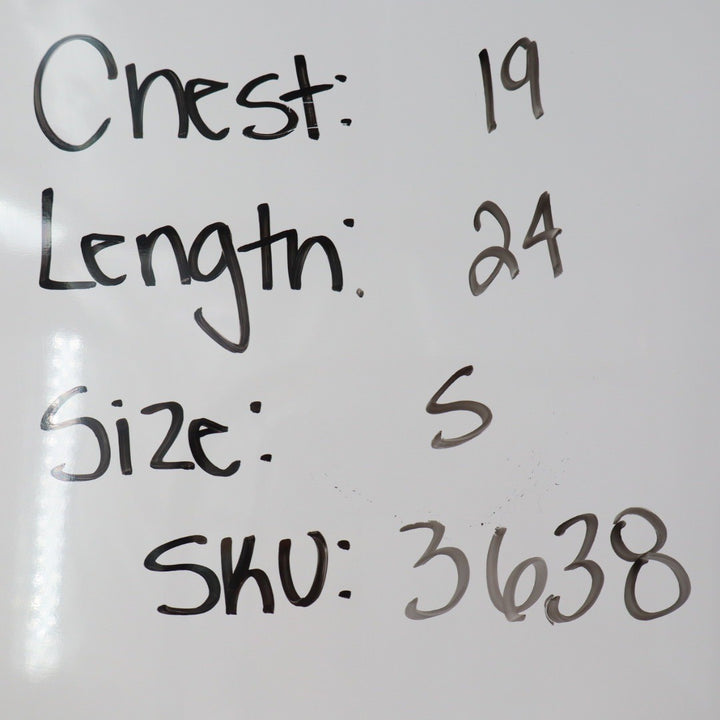 Chest: 19
Length: 24
Size: S
SKU: 3638